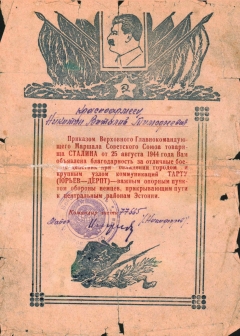 Красноармеец
Виталий
Приказом Верховного Главнокомандую-
щего Маршала Советского Союза товари-
ща СТАЛИНА от 25 августа 1944 года Вам
объявлена благодарность за отличные бое-
вые действия при овладении городом и
крупным узлом коммуникаций ТАРТУ
(ЮРЬЕВ—ДЕРПТ)—мощным опорным пунк-
том обороны немцев, прикрывающим пути
к центральным районам Эстонии.
Командир части 77665